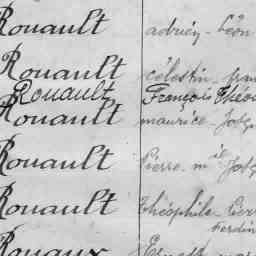 Rouault adrien - Léon
Rouault célestin
Rouault François Théo
Rouault maurice - Jos
Rouault Pierre - m
Rouault théophile - Pier
ferdin
Rouaux Ernest